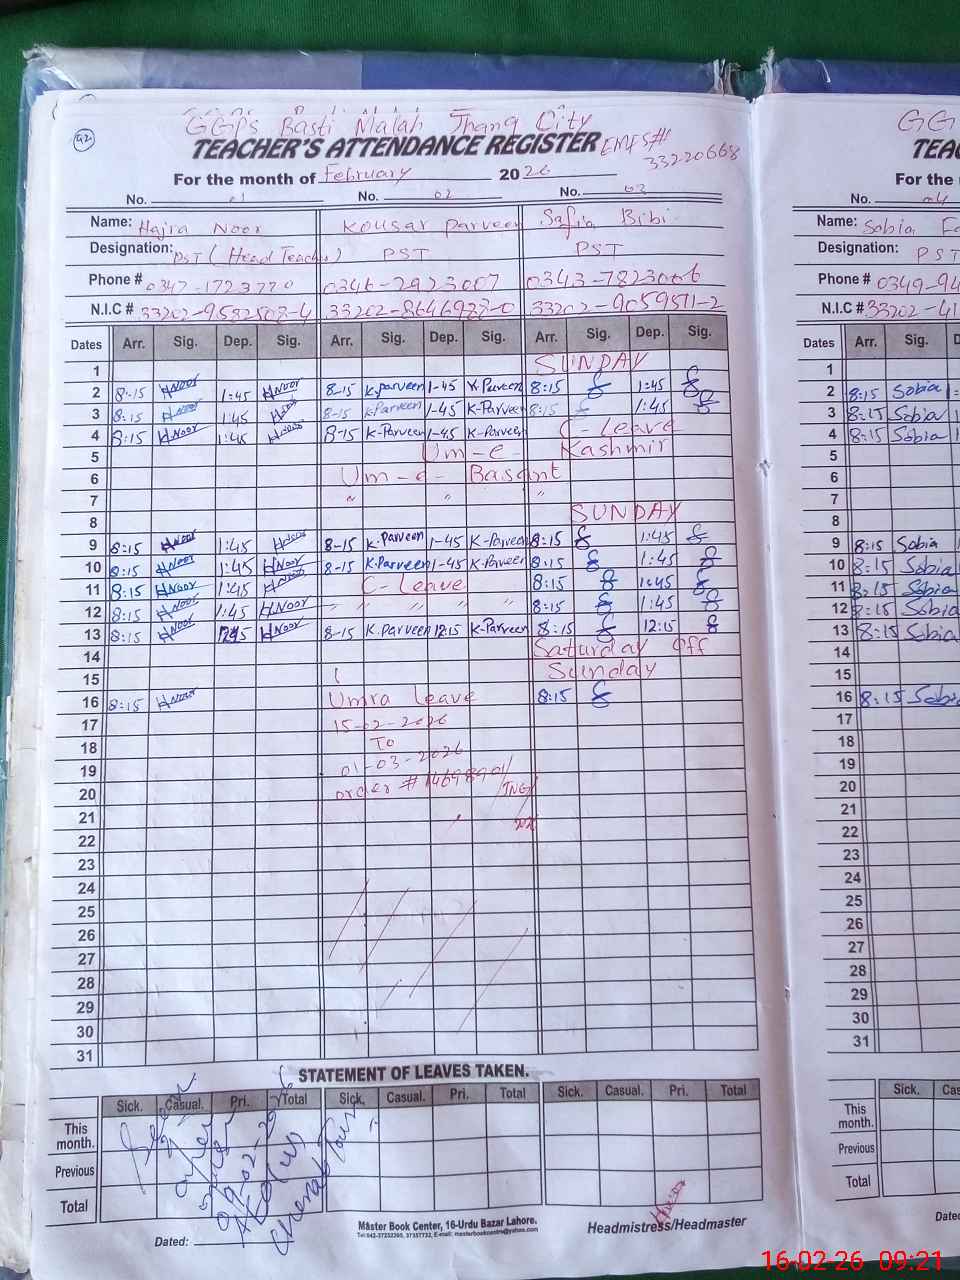 42
GGPS Basti Malah Jhang City
TEACHER'S ATTENDANCE REGISTER EMIS# 33220668
For the month of February 2026
No. 01 No. 02 No. 03
Name: Hajra Noor Kousar Parveen Safia Bibi
Designation: PST (Head Teacher) PST PST
Phone # 0347-1723770 0346-2923007 0343-7823006
N.I.C # 33202-9582508-4 33202-8646988-0 33202-9059571-2
Dates Arr. Sig. Dep. Sig. Arr. Sig. Dep. Sig. Arr. Sig. Dep. Sig.
1 SUNDAY
2 8:15 HNoor 1:45 HNoor 8-15 K.Parveen 1-45 K.Parveen 8:15 1:45
3 8:15 HNoor 1:45 HNoor 8-15 K-Parveen 1-45 K-Parveen 8:15 1:45
4 8:15 HNoor 1:45 HNoor 8-15 K-Parveen 1-45 K-Parveen C-Leave
5 Um-e- Kashmir
6 Um-e- Basant
7 " " "
8 SUNDAY
9 8:15 HNoor 1:45 HNoor 8-15 K.Parveen 1-45 K-Parveen 8:15 1:45
10 8:15 HNoor 1:45 HNoor 8-15 K.Parveen 1-45 K.Parveen 8:15 1:45
11 8:15 HNoor 1:45 HNoor C-Leave 8:15 1:45
12 8:15 HNoor 1:45 HNoor " " " " " 8:15 1:45
13 8:15 HNoor HNoor 8-15 K.Parveen 12:15 K-Parveen 8:15 12:15
14 Saturday Off
15 Sunday
16 8:15 HNoor Umra Leave 8:15
17 15-02-2026
18 To
19 01-03-2026
20 order # 14698901/
21
22
23
24
25
26
27
28
29
30
31
STATEMENT OF LEAVES TAKEN.
Sick. Casual. Pri. Total Sick. Casual. Pri. Total Sick. Casual. Pri. Total
This month.
Previous
Total
Dated:
Master Book Center, 16-Urdu Bazar Lahore.
Headmistress/Headmaster
GG
TEA
For the
No. 04
Name: Sobia
Designation: PST
Phone # 0349-94
N.I.C # 33202-41
Dates Arr. Sig.
1
2 8:15 Sobia
3 8:15 Sobia
4 8:15 Sobia
5
6
7
8
9 8:15 Sobia
10 8:15 Sobia
11 8:15 Sobia
12 8:15 Sobia
13 8:15 Sobia
14
15
16 8:15 Sobia
17
18
19
20
21
22
23
24
25
26
27
28
29
30
31
Sick. Cas
This month.
Previous
Total
Date
16-02-26 09:21